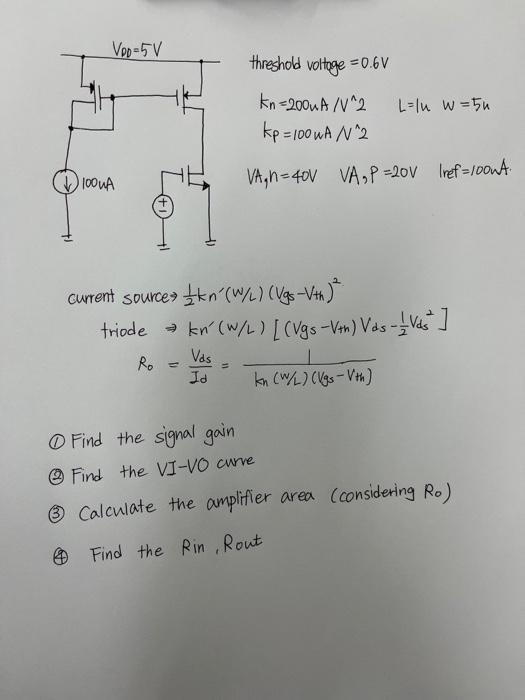 VDD=5V
threshold voltage = 0.6V
kn=200uA/V^2 L=1u W=5u
kp=100uA/V^2
VA,n=40V VA,P=20V Iref=100uA.
100uA
current source→ ½kn'(W/L)(Vgs-Vth)²
triode ⇒ kn'(W/L)[(Vgs-Vth)Vds-½Vds²]
Ro = Vds/Id = 1/kn(W/L)(Vgs-Vth)
① Find the signal gain
② Find the VI-VO curve
③ Calculate the amplifier area (considering Ro)
④ Find the Rin, Rout